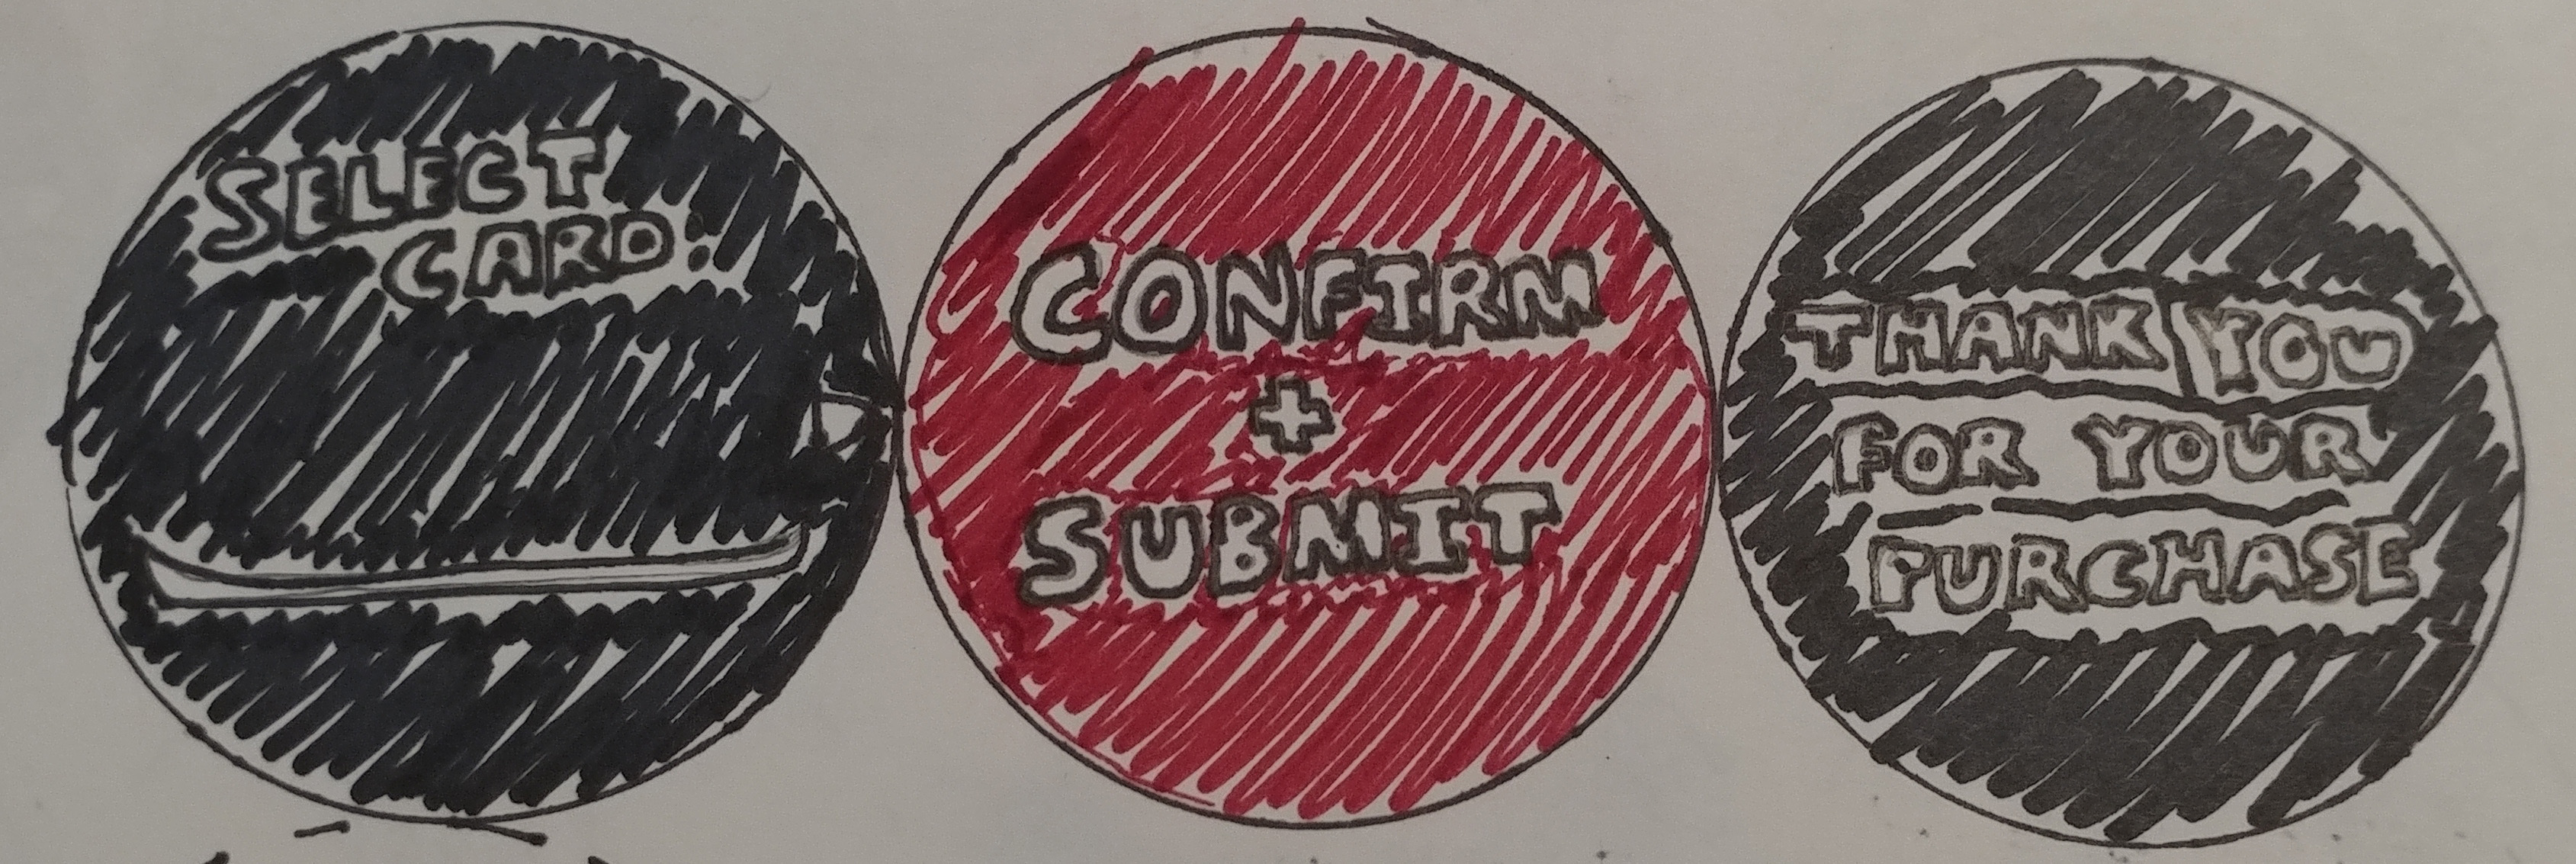 SELECT
CARD:
CONFIRM
+
SUBMIT
THANK YOU
FOR YOUR
PURCHASE